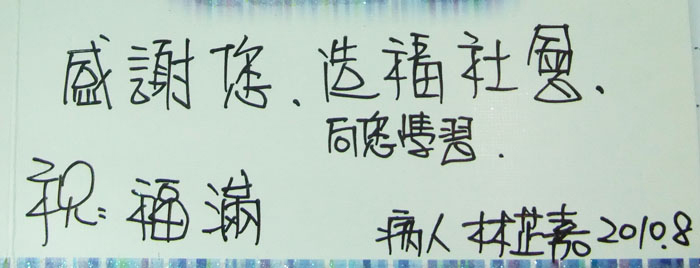 感謝您、造福社會、
向您學習.
祝:福滿
病人 林芷嘉 2010.8